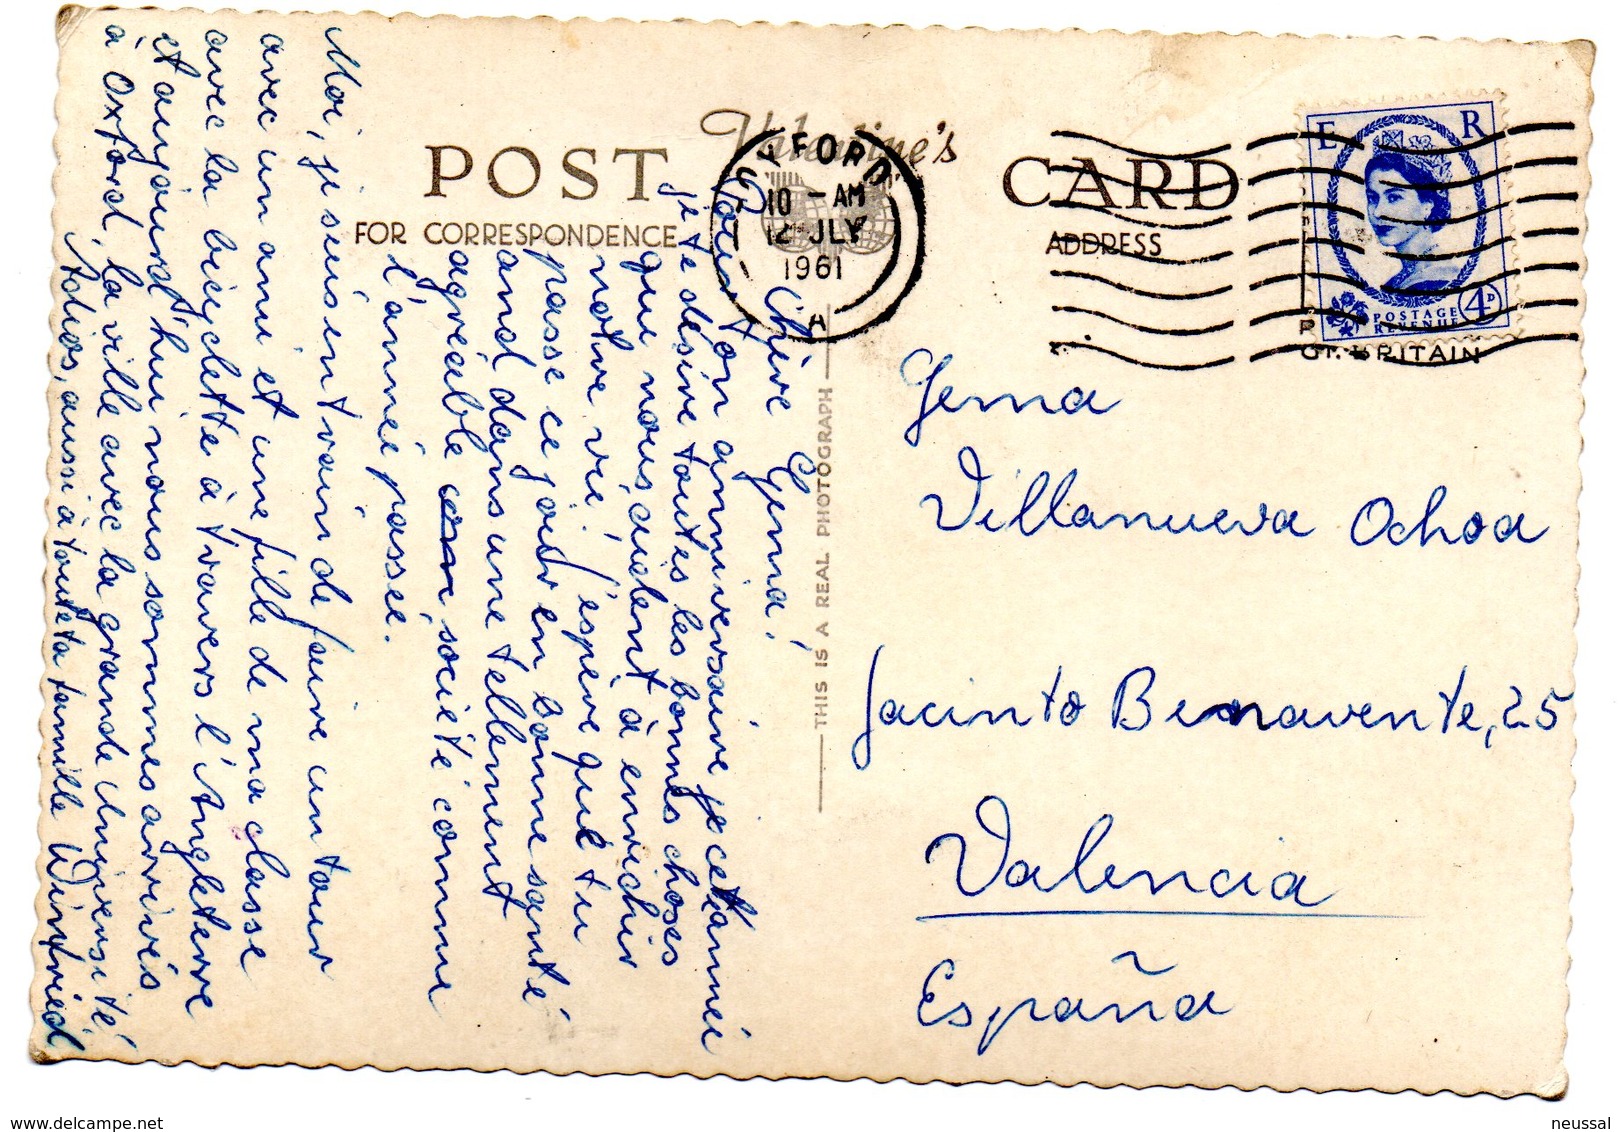 Valentine's
POST CARD
FOR CORRESPONDENCE
ADDRESS
FORD
10 - AM
12 JLY
1961
A
E R
POSTAGE
REVENUE
4D
GT. BRITAIN
THIS IS A REAL PHOTOGRAPH
Chère Gema!
Pour ton anniversaire je cet année
je te désire toutes les bonnes choses
que nous aident à enrichir
notre vie. J'espère que tu
passe ce jour en bonne santé
and dans une tellement
agréable société comme
l'année passée.
Moi, je suis en train de faire un tour
avec un ami et une fille de ma classe
avec la bicyclette à travers l'Angleterre
et aujourd'hui nous sommes arrivés
à Oxford, la ville avec la grande université
Adios, aussi à toute ta famille Winfried
Gema
Villanueva Ochoa
Jacinto Benavente, 25
Valencia
España
neussal